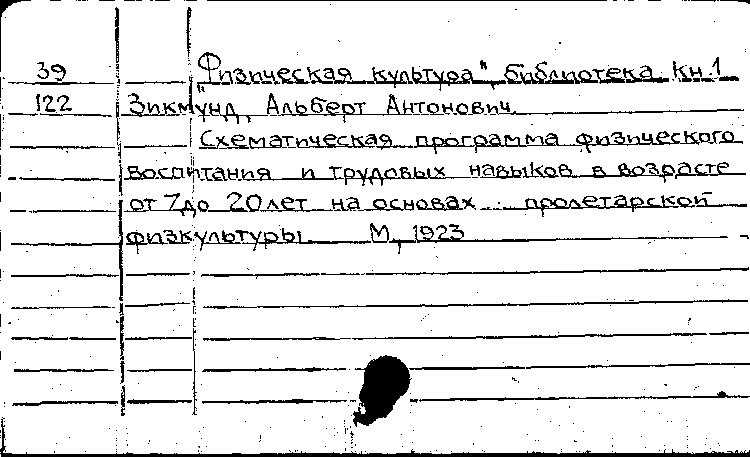 39 "Физическая культура", библиотека. Кн.1
122 Зикмунд, Альберт Антонович.
Схематическая программа физического
воспитания и трудовых навыков в возрасте
от 7 до 20 лет на основах пролетарской
физкультуры. М., 1923